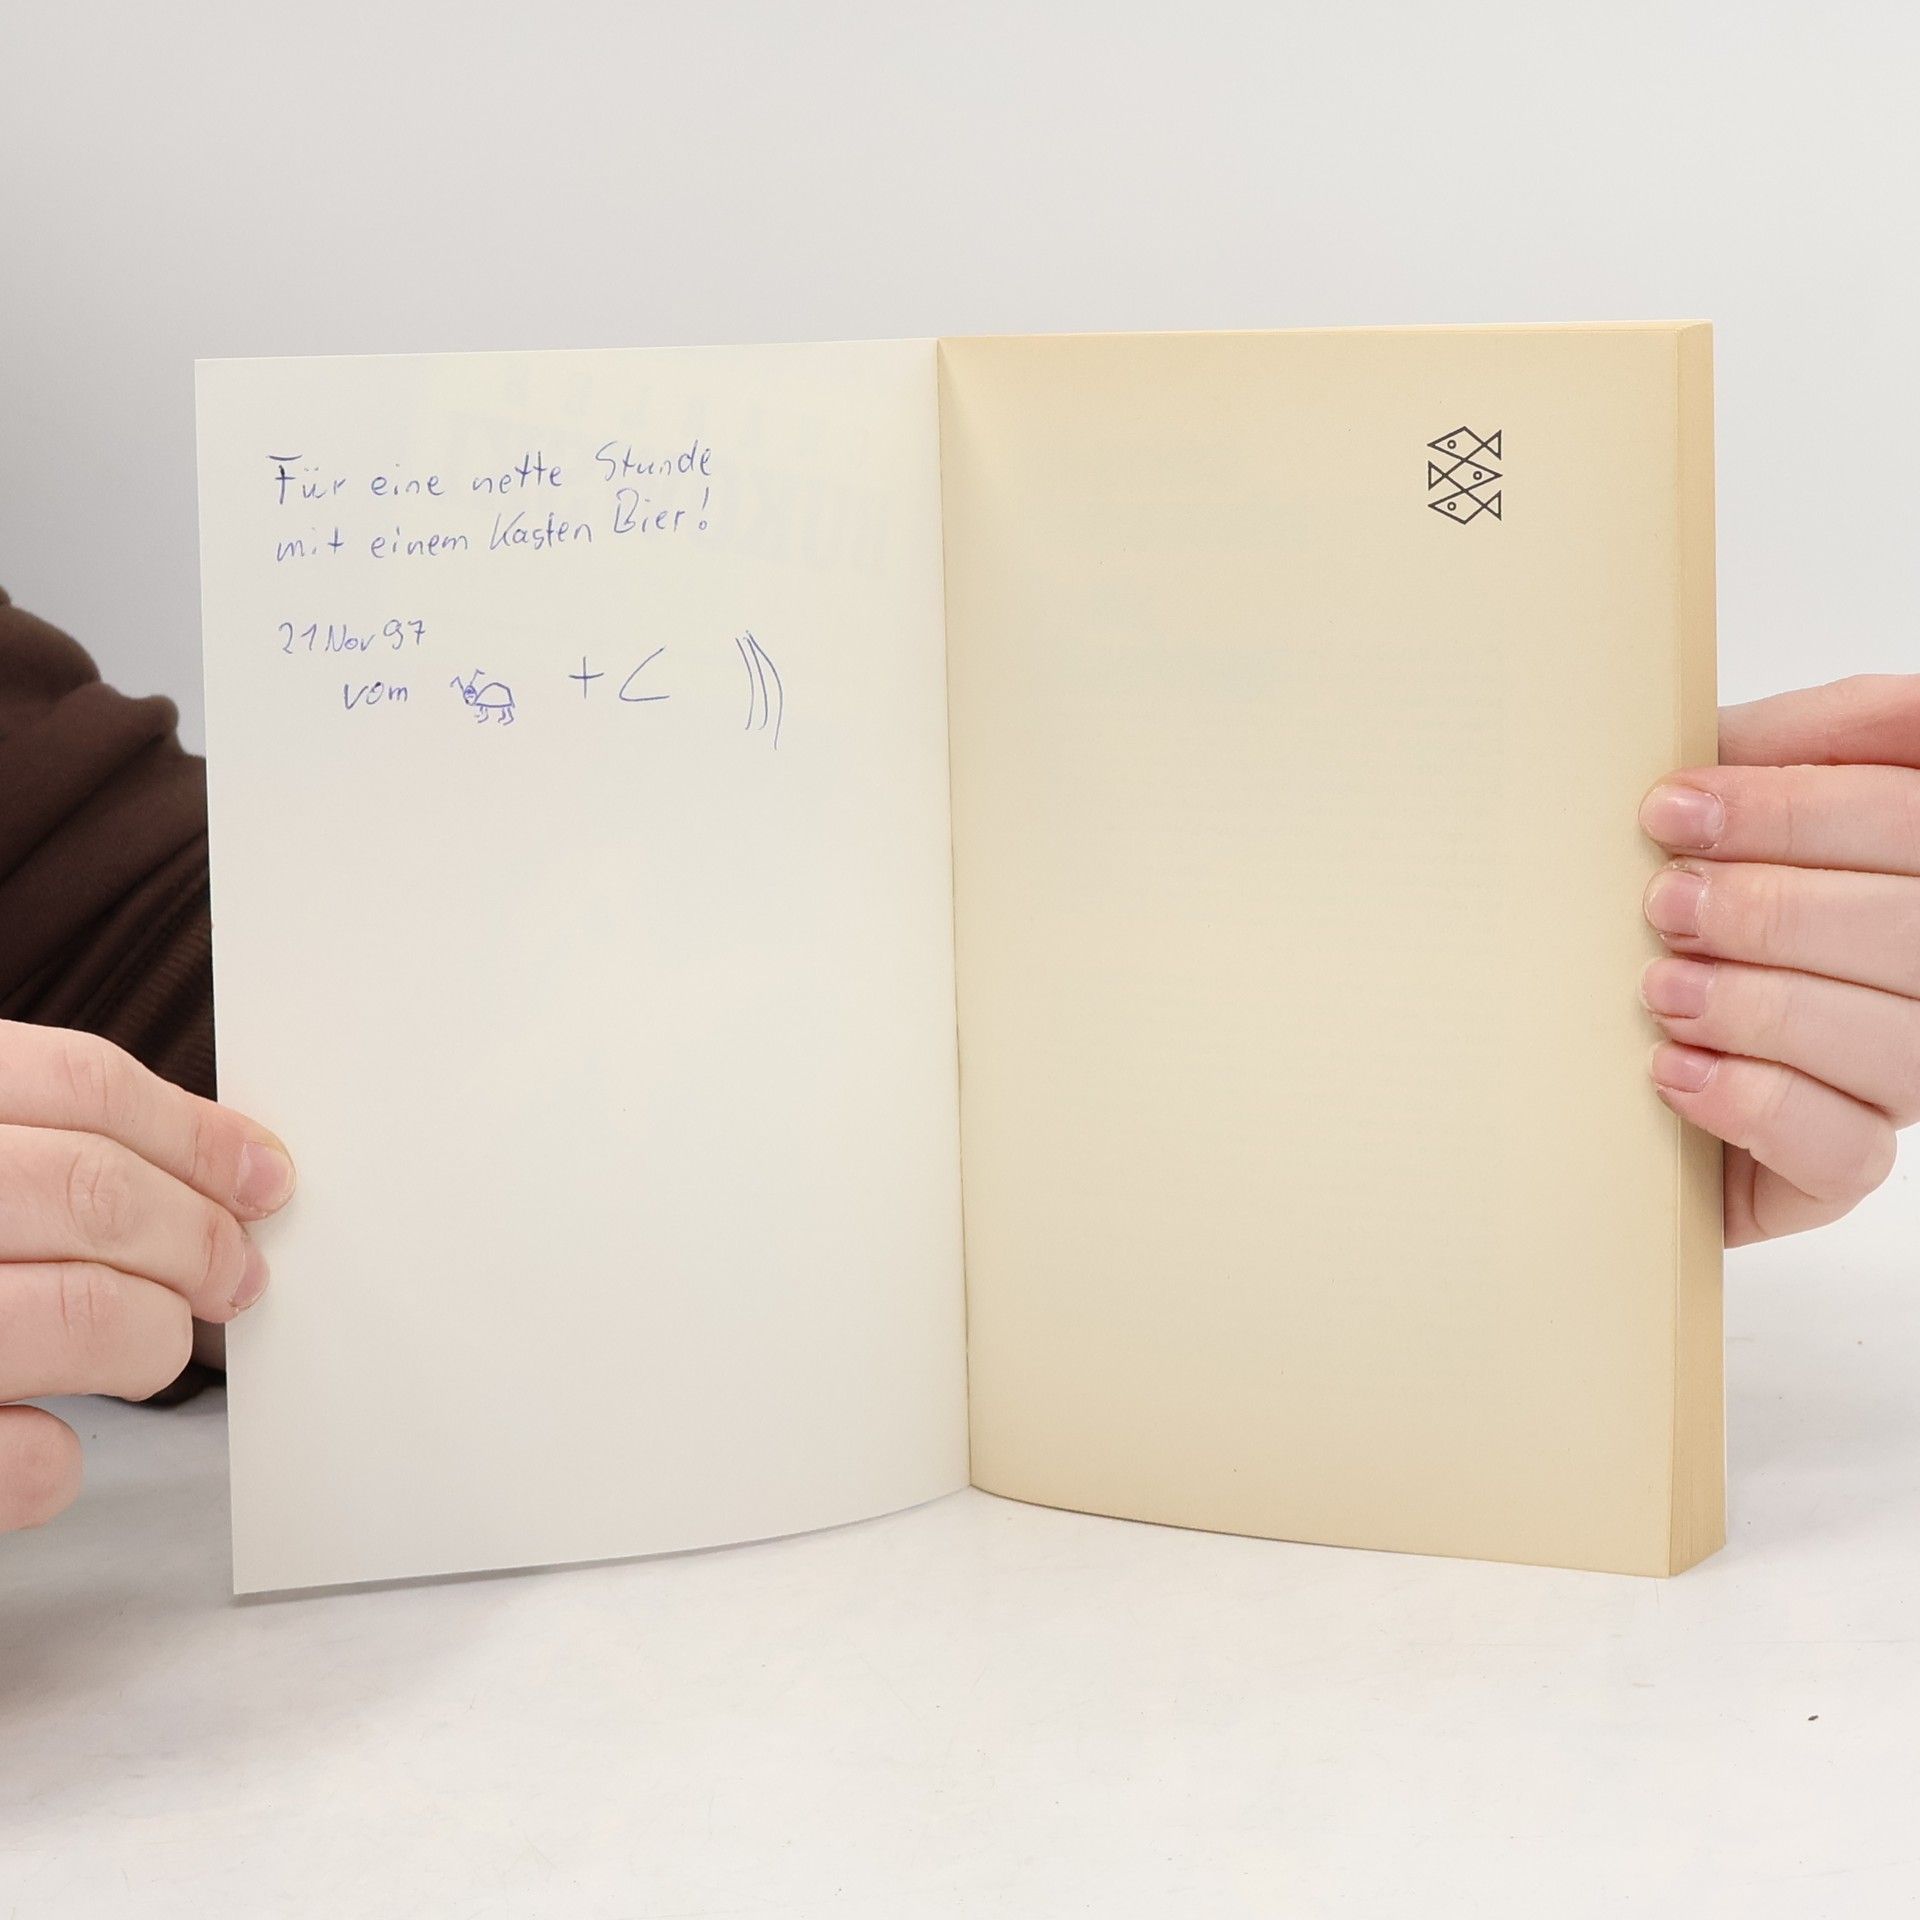 Für eine nette Stunde
mit einem Kasten Bier!
21 Nov 97
vom + C